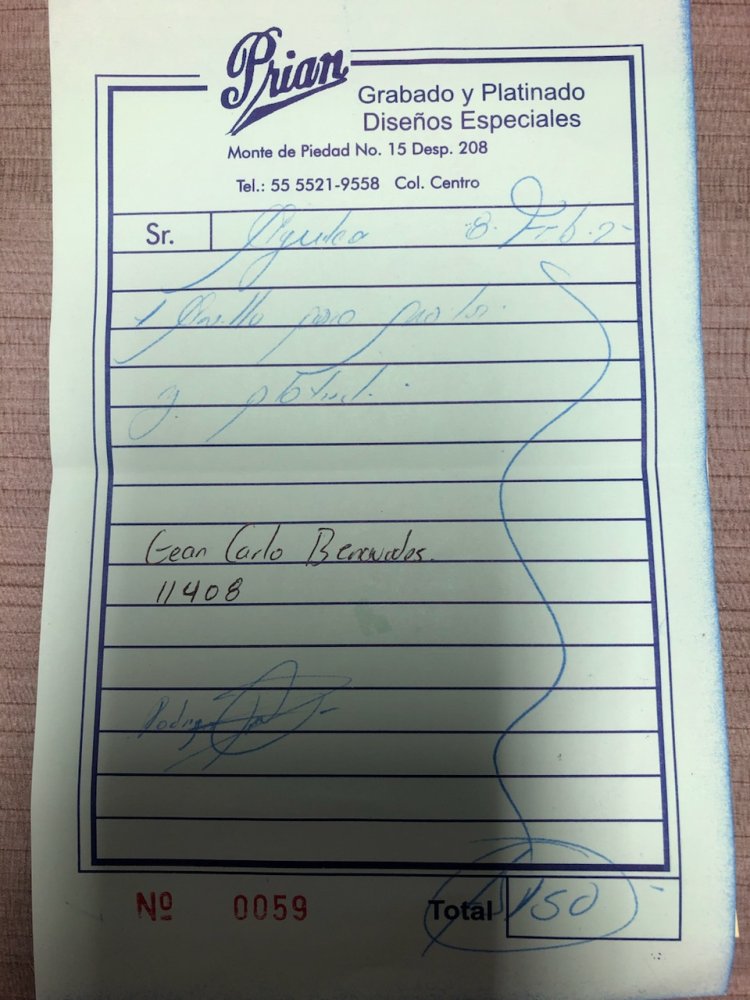 Prian
Grabado y Platinado
Diseños Especiales
Monte de Piedad No. 15 Desp. 208
Tel.: 55 5521-9558 Col. Centro
Sr. 8
1 Anillo para
y
Gean Carlo Benavides.
11408
Nº 0059
Total $150